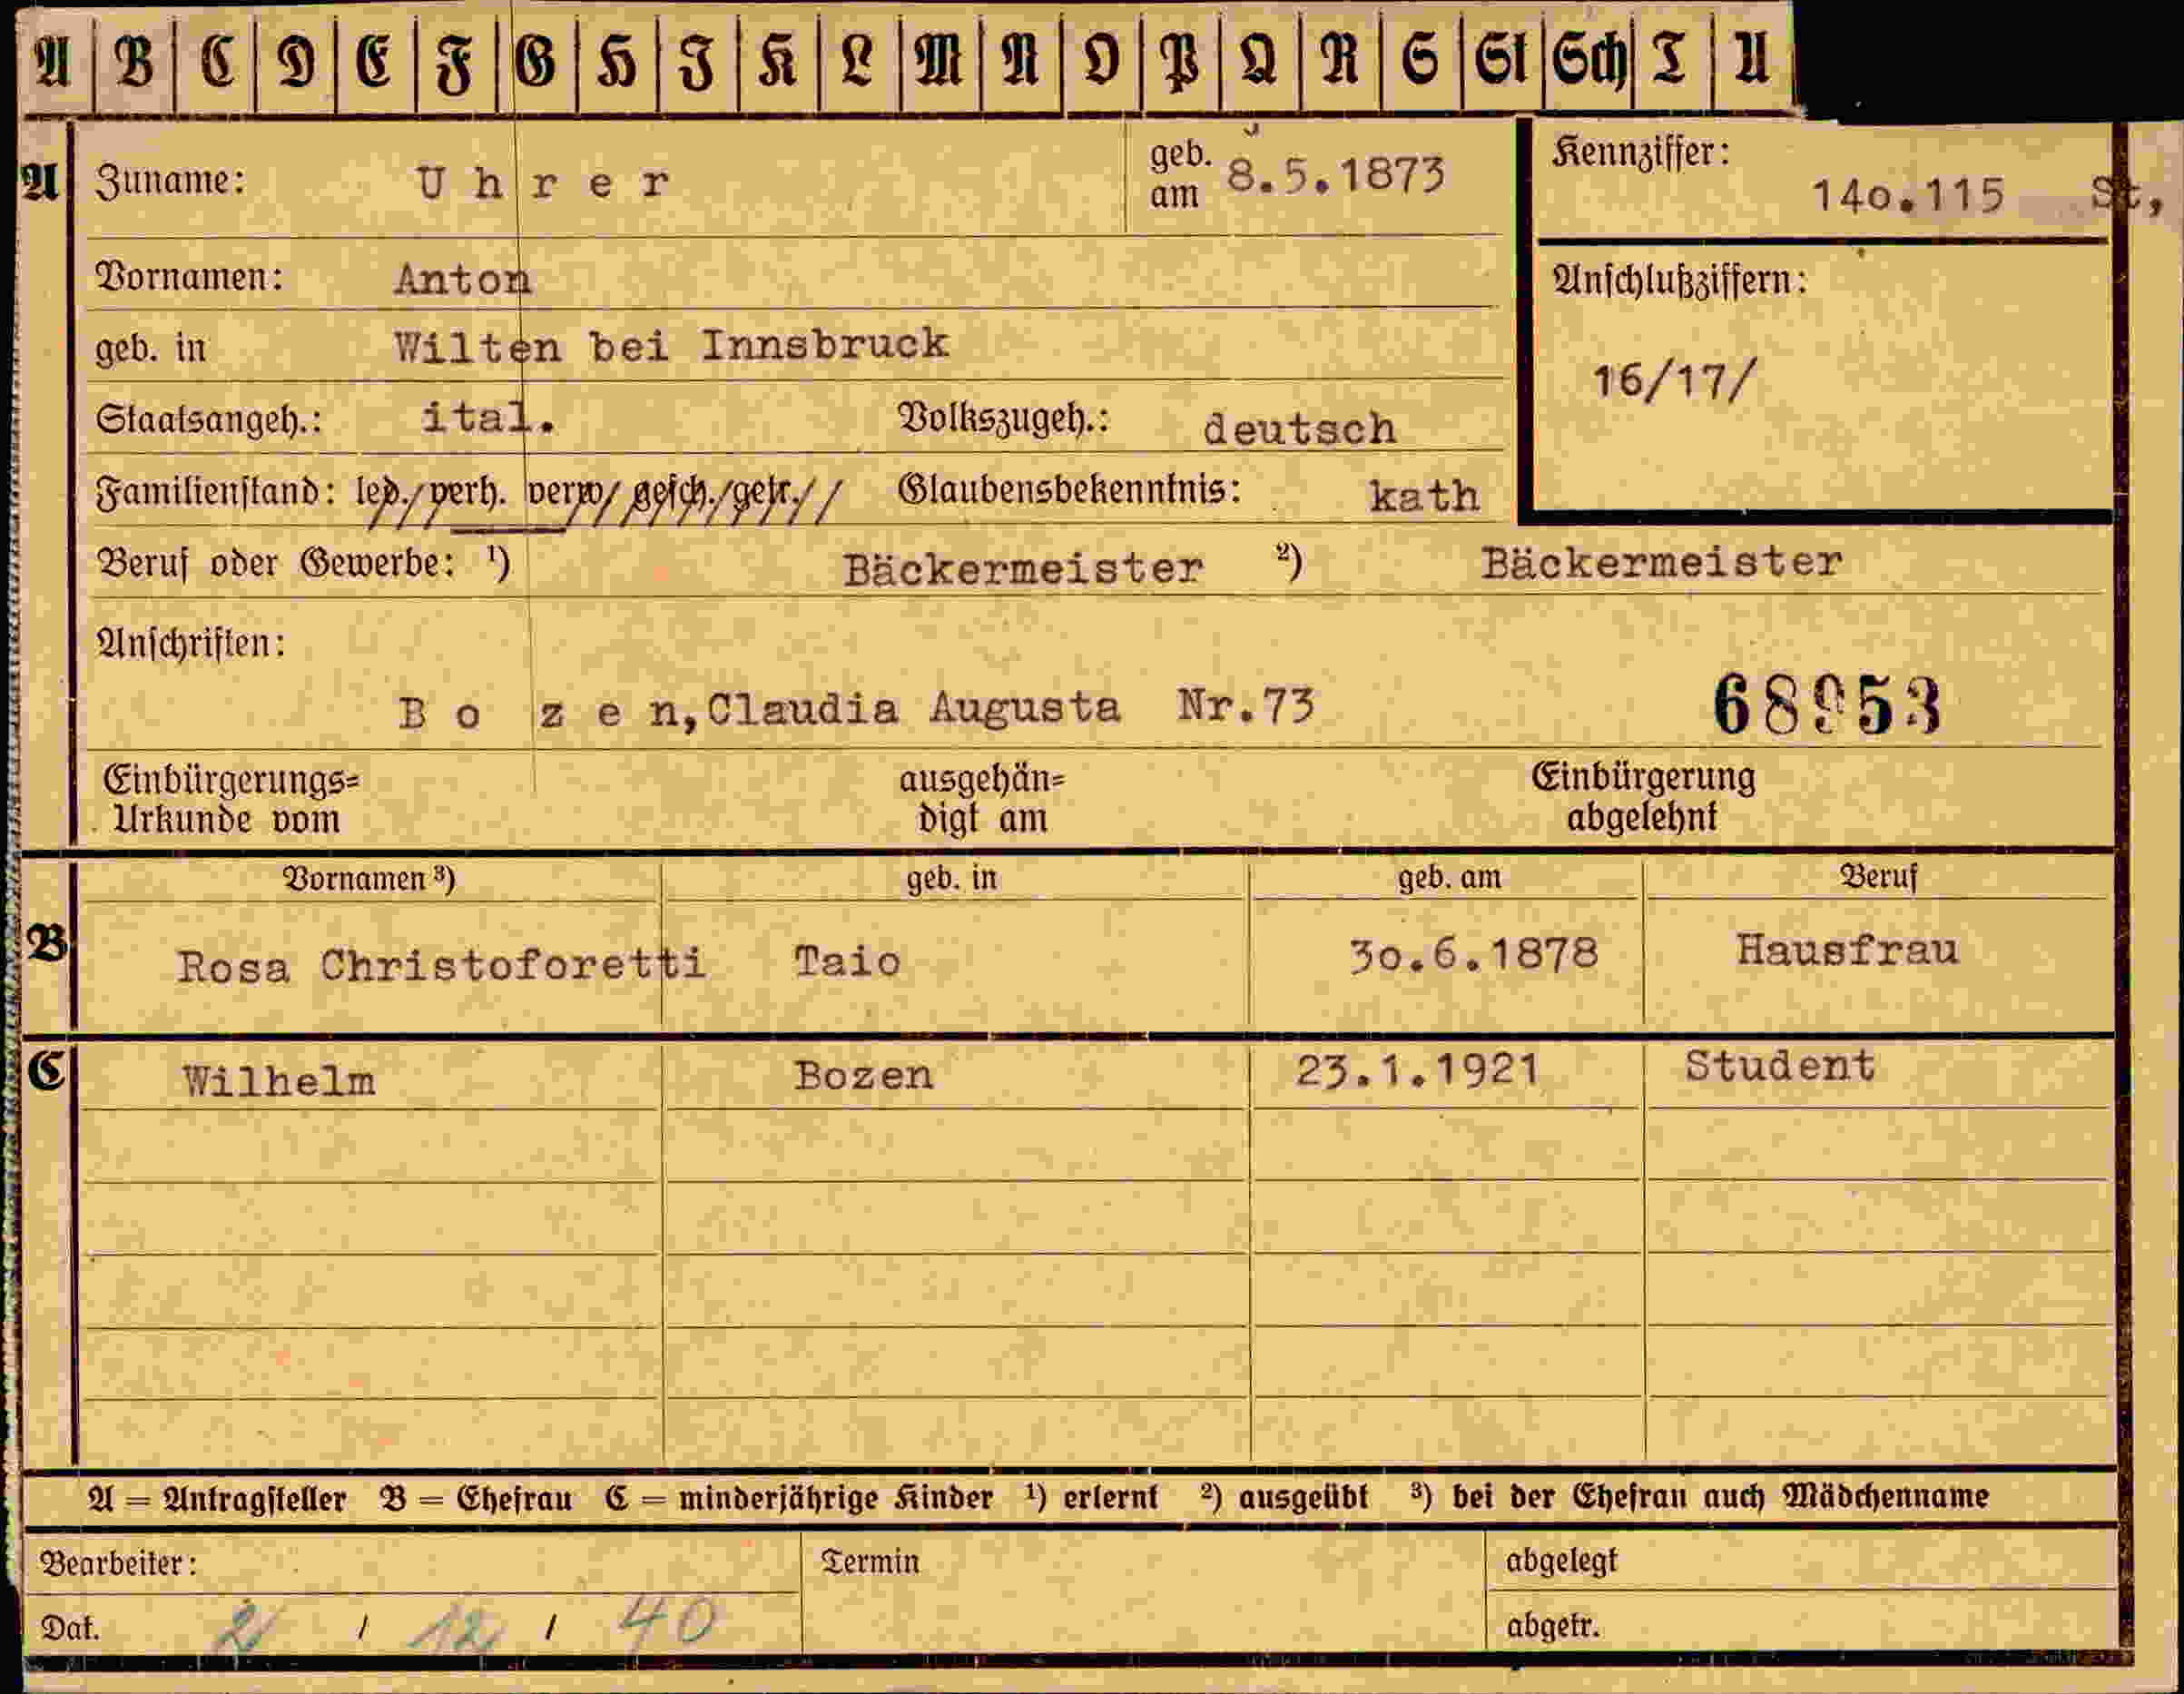 A B C D E F G H I K L M N O P Q R S St Sch T U
A Zuname: Uhrer geb. am 8.5.1873 Kennziffer: 14o.115 St,
Vornamen: Anton Anschlußziffern:
geb. in Wilten bei Innsbruck 16/17/
Staatsangeh.: ital. Volkszugeh.: deutsch
Familienstand: led./verh. verw/ gesch./getr.// Glaubensbekenntnis: kath
Beruf oder Gewerbe: ¹) Bäckermeister ²) Bäckermeister
Anschriften:
Bozen,Claudia Augusta Nr.73 68953
Einbürgerungs= ausgehän= Einbürgerung
Urkunde vom digt am abgelehnt
Vornamen ³) geb. in geb. am Beruf
B Rosa Christoforetti Taio 3o.6.1878 Hausfrau
C Wilhelm Bozen 23.1.1921 Student
A = Antragsteller B = Ehefrau C = minderjährige Kinder ¹) erlernt ²) ausgeübt ³) bei der Ehefrau auch Mädchenname
Bearbeiter: Termin abgelegt
Dat. 2 / 12 / 40 abgetr.